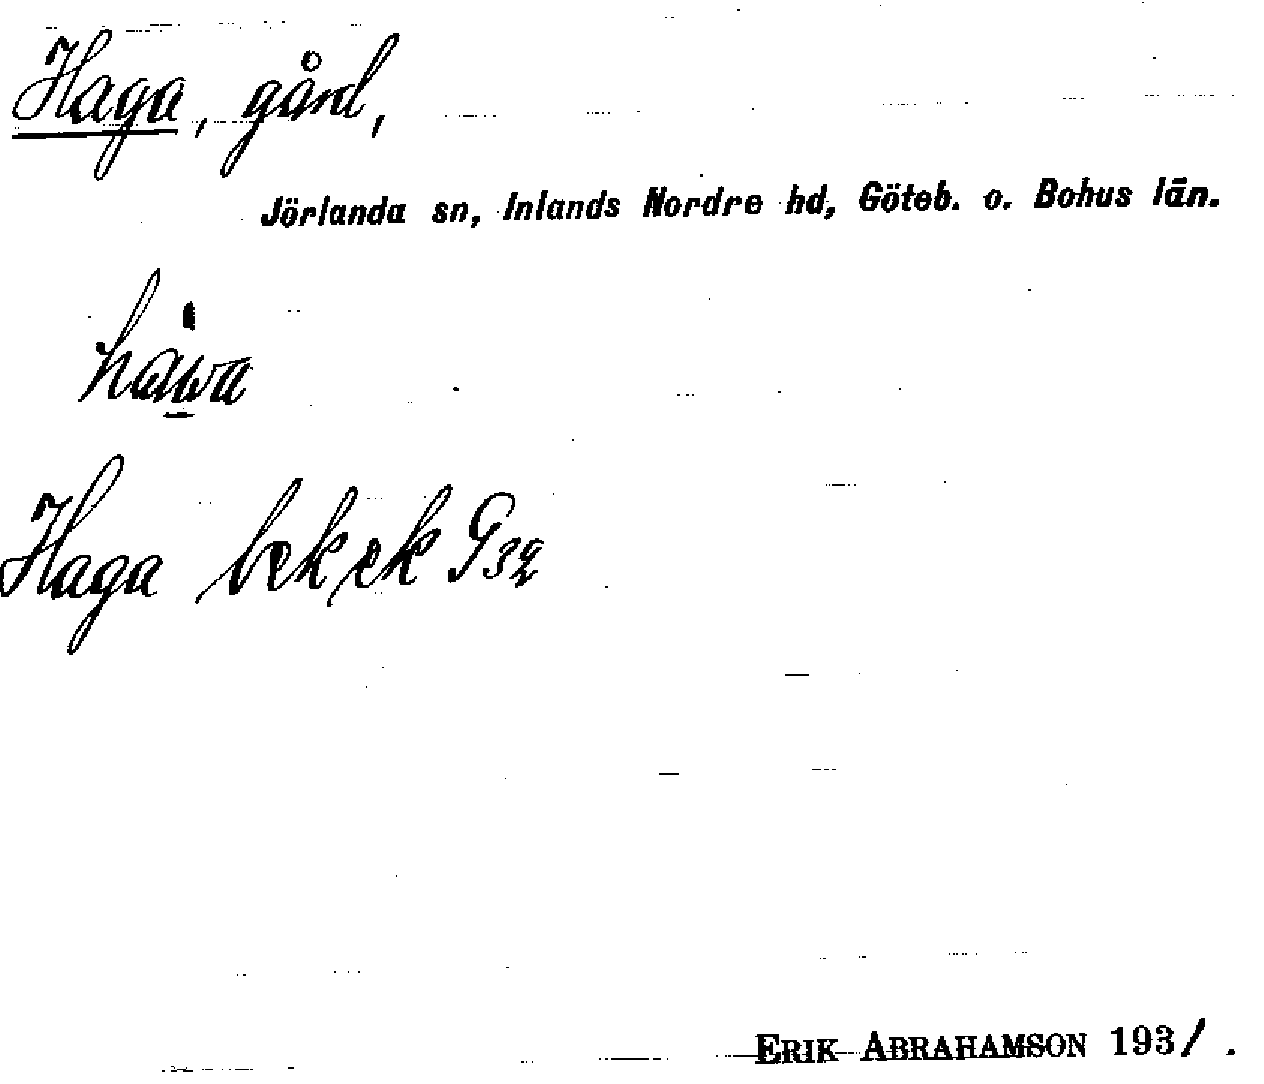 Haga, gård,
Jörlanda sn, Inlands Nordre hd, Göteb. o. Bohus län.
Haga
ERIK ABRAHAMSON 1931.